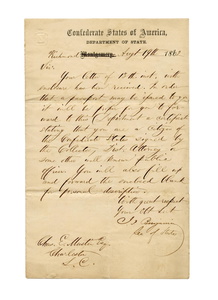 Confederate States of America,
DEPARTMENT OF STATE.
Richmond Montgomery, Sept 19th 1862
Sir
Your letter of 15th inst. with
enclosure has been received. In order
that a passport may be furnished to you
it will be proper for you to for-
ward to this Department a certificate
stating that you are a citizen of
the Confederate States signed by
the Collector, Post Master, or
some other well known public
officer. You will also fill up
and forward the enclosed blank
for personal description.
With great respect
Your Obt svt
J. P. Benjamin
Sec. of State
Chas. Esq.
Charleston
S. C.